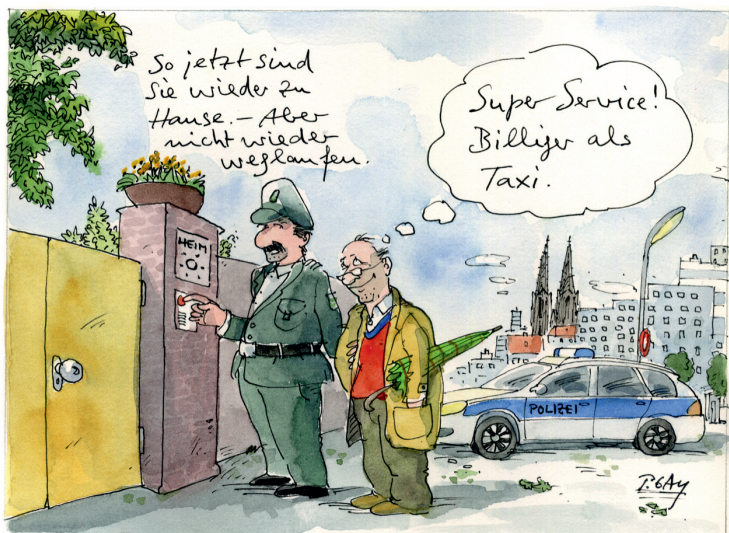 So jetzt sind
Sie wieder zu
Hause. - Aber
nicht wieder
weglaufen.
Super Service!
Billiger als
Taxi.
HEIM
POLIZEI